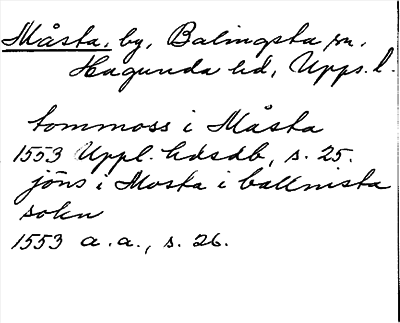 Måsta, by, Balingsta sn,
Hagunda hd, Upps. l.
tommoss i Måsta
1553 Uppl. hdsdb, s. 25.
jöns i Mosta i ballnista
sokn
1553 a. a., s. 26.